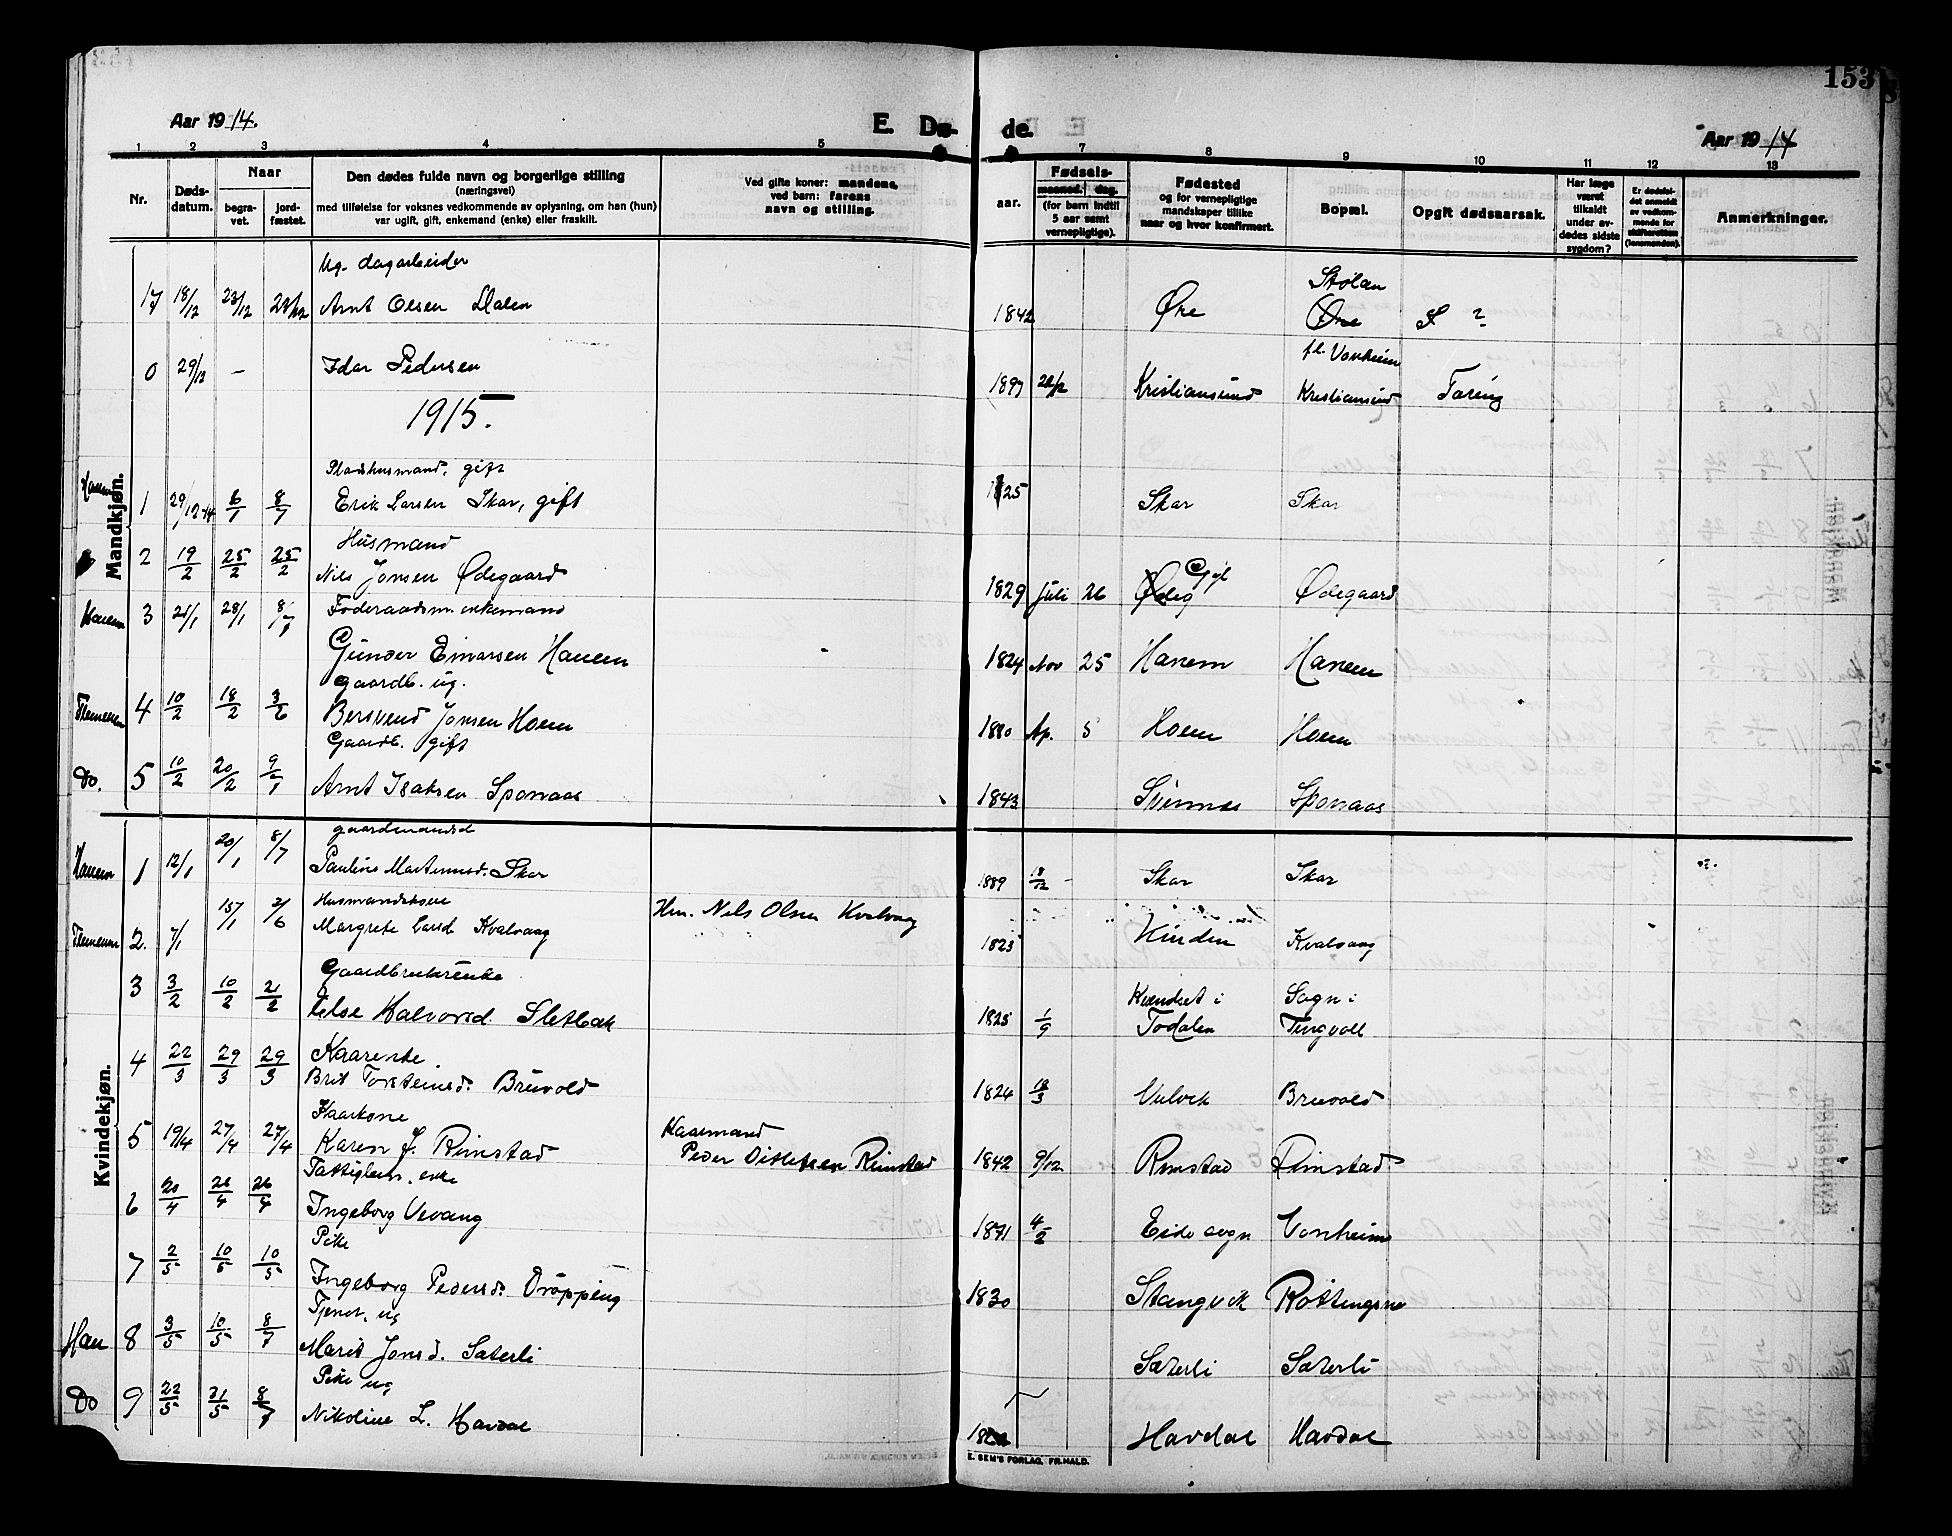 153
Aar 1914.
E. Dø- de.
Aar 1914
1 2 3 4 5 7 8 9 10 11 12 13
Nr.
Døds-
datum.
Naar
begra-
vet.
jord-
fæstet.
Den dødes fulde navn og borgerlige stilling
(næringsvei)
med tilføielse for voksnes vedkommende av oplysning, om han (hun)
var ugift, gift, enkemand (enke) eller fraskilt.
Ved gifte koner: mandens,
ved barn: farens
navn og stilling.
aar.
Fødsels-
maaned. dag.
(for barn indtil
5 aar samt
vernepligtige).
Fødested
og for vernepligtige
mandskaper tillike
naar og hvor konfirmert.
Bopæl.
Opgit dødsaarsak.
Har læge
været
tilkaldt
under av-
dødes sidste
sygdom?
Er dødsfal-
det anmeldt
av vedkom-
mende for
skifteretten
(lensmanden).
Anmerkninger.
Mandkjøn.
Ug. dagarbeider
Stølan
17 18/12 23/12 Arnt Olsen Dalen 1842 Øre Øre ?
fl. Vonheim
0 29/12 - Idar Pedersen 1897 Kristiansund Kristiansund Tæring
1915.
Pladshusmand, gift
Hanem 1 29/12 14 6/1 8/7 Erik Larsen Skar, gift 1825 Skar Skar
Husmand
2 19/2 25/2 25/2 Nils Jonsen Ødegaard 1829 Juli 26 Gjl Ødegaard
Hanem 3 21/1 28/1 8/7 Føderaadsm. enkemand
Gunder Einarsen Hanem 1824 Nov 25 Hanem Hanem
gaardb. ug.
4 10/2 18/2 3/6 Bersvend Jonsen Hoem 1880 Ap. 5 Hoem Hoem
Gaardb. gift
Do. 5 10/2 20/2 9/7 Arnt Isaksen Sponaas 1843 Sponaas
Kvindekjøn.
gaardmandsd
Hanem 1 12/1 20/1 8/7 Pauline Martinusd. Skar 1889 18/12 - Skar Skar
Husmandskone
2. 7/1 15/1 2/6 Margrete Larsd Kvalvaag Hm. Nils Olsen Kvalvaag 1825 Kinden Kvalvaag
Gaardbrukerenke
3 3/2 10/2 21/2 Else Halvorsd. Sletbak 1825 1/9 Kvendset i Todalen Sogn i Tingvoll
Kaarenke
4 22/3 29/3 29/3 Brit Torsteinsd. Bruvold 1824 18/3 Vulvik Bruvold
Kaarkone
5 19/4 27/4 27/4 Karen J. Rimstad Kaarmand Peder Ditlefsen Rimstad 1842 9/12 Rimstad Rimstad
Fattiglem, enke
6 20/4 26/4 26/4 Ingeborg Vevang 1871 4/2 Eide sogn Vonheim
Pike
7 2/5 10/5 10/5 Ingeborg Pedersd. Drøpping 1830 Stangvik
Tjener, ug
Han 8 3/5 10/5 8/7 Marit Jonsd. Sæterli Sæterli Sæterli
Pike ug
Do 9 22/5 31/5 8/7 Nikoline L. Havdal Havdal Havdal
E. SEM'S FORLAG, FR.HALD.